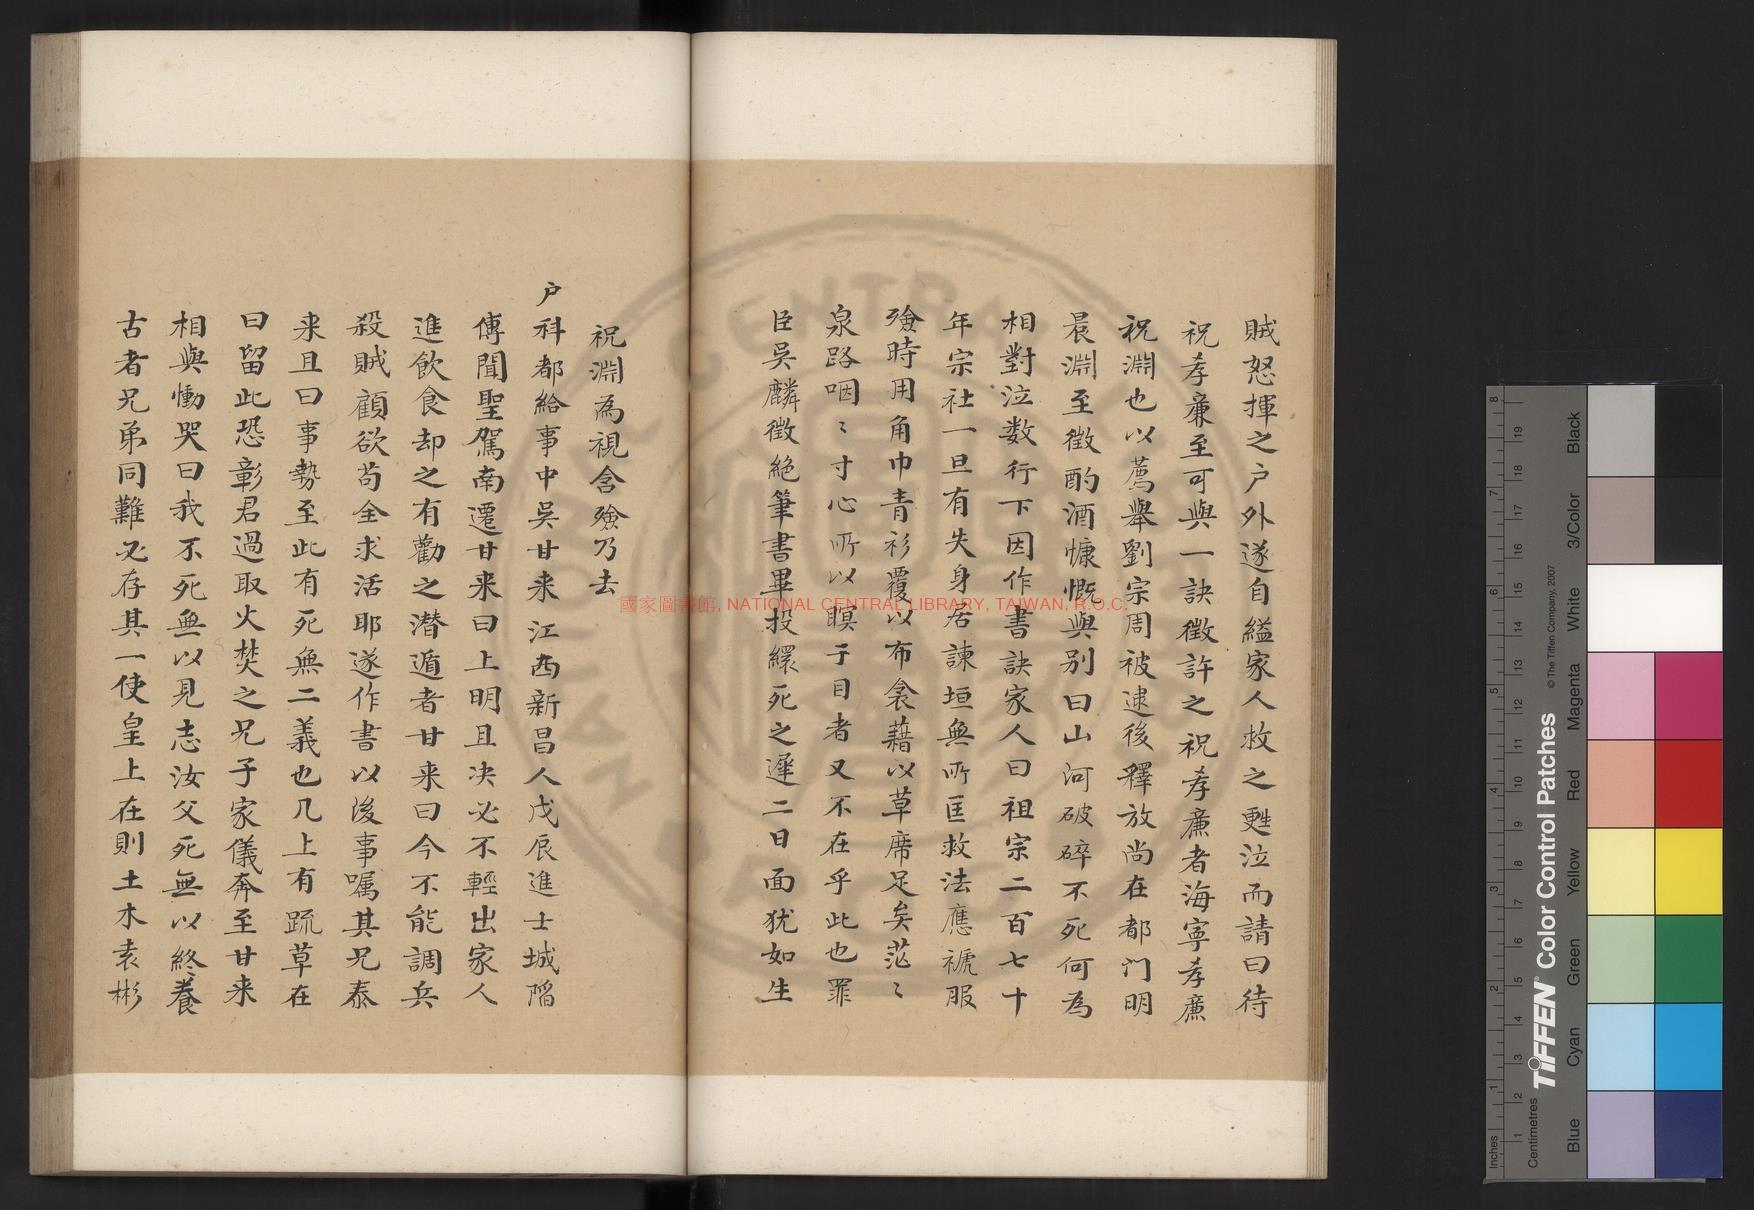 賊怒揮之户外遂自縊家人救之甦泣而請曰待
祝孝亷至可與一訣徵許之祝孝亷者海寧孝亷
祝淵也以薦舉劉宗周被逮後釋放尚在都门明
晨淵至徵酌酒慷慨與别曰山河破碎不死何為
相對泣数行下因作書訣家人曰祖宗二百七十
年宗社一旦有失身居諫垣無所匡救法應褫服
殮時用角巾青衫覆以布衾藉以草席足矣茫〻
泉路咽〻寸心所以瞑于目者又不在乎此也罪
臣吳麟徵絶筆書畢投繯死之遲二日面犹如生
祝淵為視含殮乃去
户科都給事中吳甘来江西新昌人戊辰進士城陷
傳聞聖駕南遷甘来曰上明且决必不輕出家人
進飲食却之有勸之潛遁者甘来曰今不能調兵
殺賊顧欲苟全求活耶遂作書以後事嘱其兄泰
来且曰事勢至此有死無二義也几上有疏草在
曰留此恐彰君過取火焚之兄子家儀奔至甘来
相與慟哭曰我不死無以見志汝父死無以終養
古者兄弟同難必存其一使皇上在則土木袁彬
國家圖書館, NATIONAL CENTRAL LIBRARY, TAIWAN, R.O.C.
TIFFEN® Color Control Patches
© The Tiffen Company, 2007
Inches
1 2 3 4 5 6 7 8
Centimetres
1 2 3 4 5 6 7 8 9 10 11 12 13 14 15 16 17 18 19
Blue
Cyan
Green
Yellow
Red
Magenta
White
3/Color
Black